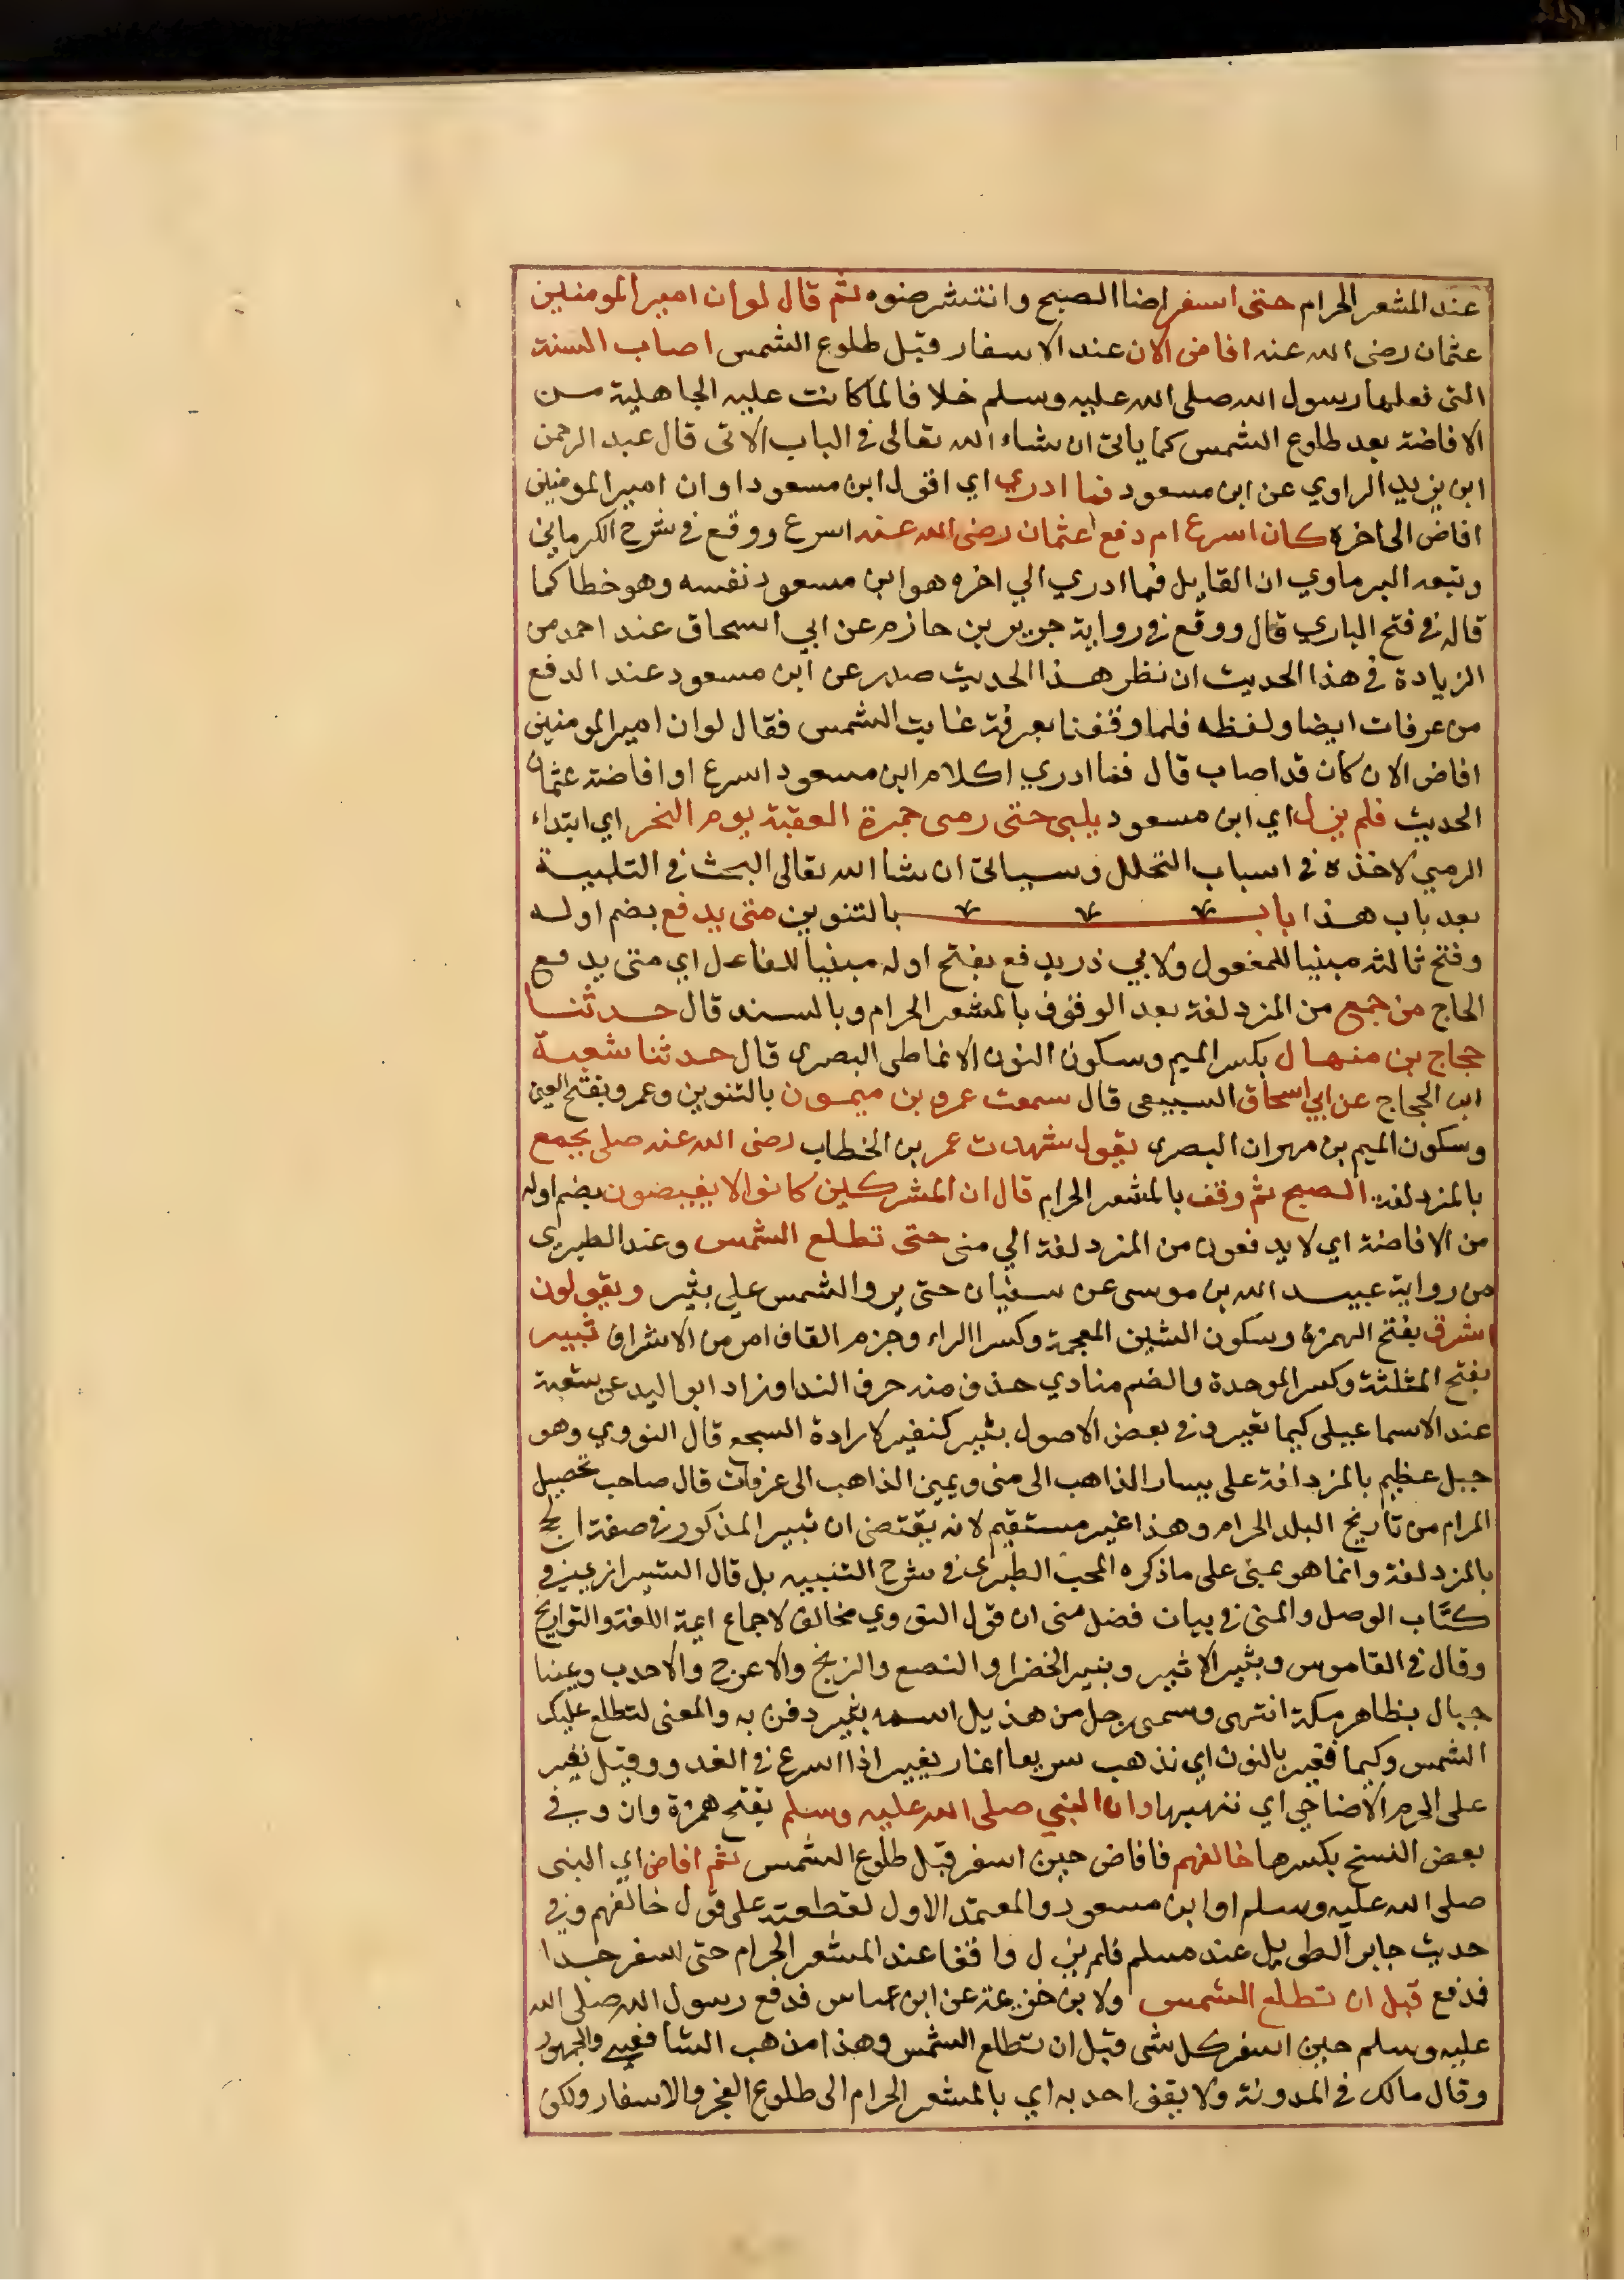 عند المشعر الحرام حتى اسفر اضا الصبح وانتشر ضوه ثم قال لو ان امير المومنين
عثمان رضى الله عنه افاض الان عند الاسفار قبل طلوع الشمس اصاب السنة
التى فعلها رسول الله صلى الله عليه وسلم خلافا لما كانت عليه الجاهلية من
الافاضة بعد طلوع الشمس كما ياتى ان شاء الله تعالى فى الباب الاتى قال عبد الرحمن
ابن يزيد الراوي عن ابن مسعود فما ادري اي اقول ابن مسعود او ان امير المومنين
افاض الى اخره كان اسرع ام دفع عثمان رضى الله عنه اسرع ووقع فى شرح الكرمانى
وتبعه البرماوي ان القايل فما ادري الي اخره هو ابن مسعود نفسه وهو خطا كما
قاله فى فتح الباري قال ووقع فى رواية جرير بن حازم عن ابي اسحاق عند احمد من
الزيادة فى هذا الحديث ان نظر هذا الحديث صدر عن ابن مسعود عند الدفع
من عرفات ايضا ولفظه فلما وقفنا بعرفة غابت الشمس فقال لو ان امير المومنين
افاض الان كان قد اصاب قال فما ادري اكلام ابن مسعود اسرع او افاضة عثمان
الحديث فلم يزل اي ابن مسعود يلبى حتى رمى جمرة العقبة يوم النحر اي ابتداء
الرمي لاخذه فى اسباب التحلل وسياتى ان شا الله تعالى البحث فى التلبية
بعد باب هذا باب بالتنوين متى يدفع بضم اوله
وفتح ثالثه مبنيا للمفعول ولابي ذر يدفع بفتح اوله مبنيا للفاعل اي متى يدفع
الحاج من جمع من المزدلفة بعد الوقوف بالمشعر الحرام وبالسند قال حدثنا
حجاج بن منهال بكسر الميم وسكون النون الانماطى البصرى قال حدثنا شعبة
ابن الحجاج عن ابي اسحاق السبيعى قال سمعت عمرو بن ميمون بالتنوين وعمرو بفتح العين
وسكون الميم بن مهران البصرى يقول شهدت عمر بن الخطاب رضى الله عنه صلى بجمع
بالمزدلفة الصبح ثم وقف بالمشعر الحرام قال ان المشركين كانوا لا يفيضون بضم اوله
من الافاضة اي لا يدفعون من المزدلفة الي منى حتى تطلع الشمس وعند الطبرى
من رواية عبيد الله بن موسى عن سفيان حتى يروا الشمس علي بثير ويقولون
اشرق بفتح الهمزة وسكون الشين المعجمة وكسر الراء وجزم القاف امر من الاشراق ثبير
بفتح المثلثة وكسر الموحدة والضم منادي حذف منه حرف الندا وزاد ابو اليد عن شعبة
عند الاسماعيلى كيما نغير وفى بعض الاصول بثير كنفير لارادة السجع قال النووي وهو
جبل عظيم بالمزدلفة على يسار الذاهب الى منى ويمين الذاهب الى عرفات قال صاحب تحصيل
المرام من تاريخ البلد الحرام وهذا غير مستقيم لانه يقتضى ان ثبير المذكور فى صفة الحج
بالمزدلفة وانما هو بمنى على ما ذكره المحب الطبرى فى شرح التنبيه بل قال الشيرازى فى
كتاب الوصل والمنى فى بيان فضل منى ان قول النووي مخالف لاجماع ايمة اللغة والتواريخ
وقال فى القاموس وبثير الاثبير وبثير الخضرا والنصع والزنج والاعرج والاحدب وغينا
جبال بظاهر مكة انتهى وسمى برجل من هذيل اسمه بثير دفن به والمعنى لتطلع عليك
الشمس وكيما نغير بالنون اي نذهب سريعا اغار يغير اذا اسرع فى العدو وقيل نغير
على لحوم الاضاحي اي ننهبها وان النبي صلى الله عليه وسلم بفتح همزة وان وفي
بعض النسخ بكسرها خالفهم فافاض حين اسفر قبل طلوع الشمس ثم افاض اي النبى
صلى الله عليه وسلم او ابن مسعود والمعتمد الاول لعطفه على قول خالفهم وفى
حديث جابر الطويل عند مسلم فلم يزل واقفا عند المشعر الحرام حتى اسفر جدا
فدفع قبل ان تطلع الشمس ولابن خزيمة عن ابن عباس فدفع رسول الله صلى الله
عليه وسلم حين اسفر كل شى قبل ان تطلع الشمس وهذا مذهب الشافعي والجمهور
وقال مالك فى المدونة ولا يقف احد به اي بالمشعر الحرام الى طلوع الفجر والاسفار ولكن